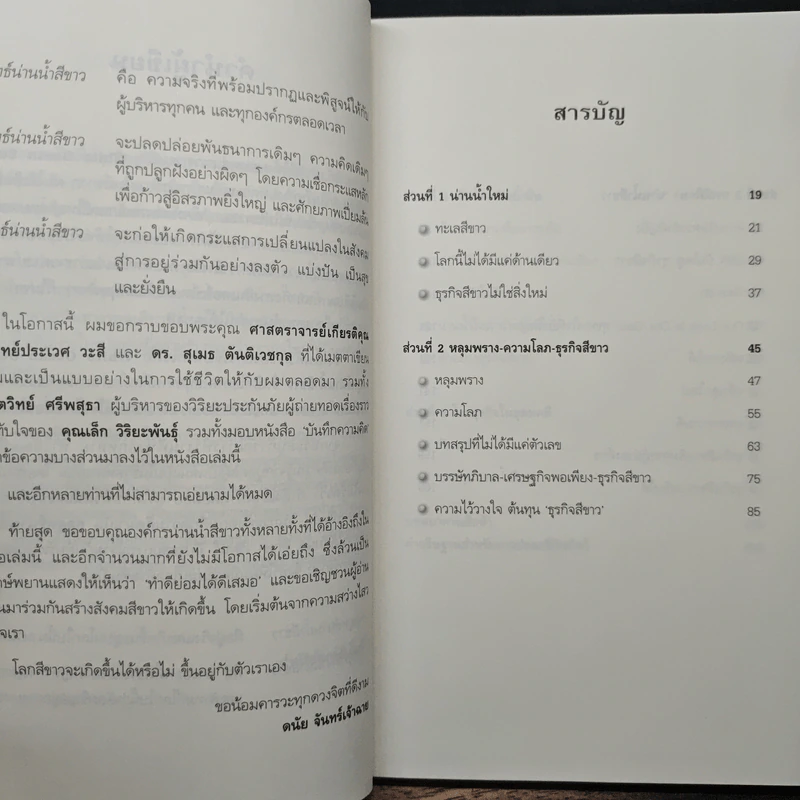 น่านน้ำสีขาว คือ ความจริงที่พร้อมปรากฏและพิสูจน์ให้กับ
ผู้บริหารทุกคน และทุกองค์กรตลอดเวลา
น่านน้ำสีขาว จะปลดปล่อยพันธนาการเดิมๆ ความคิดเดิมๆ
ที่ถูกปลูกฝังอย่างผิดๆ โดยความเชื่อกระแสหลัก
เพื่อก้าวสู่อิสรภาพยิ่งใหญ่ และศักยภาพเปี่ยมล้น
น่านน้ำสีขาว จะก่อให้เกิดกระแสการเปลี่ยนแปลงในสังคม
สู่การอยู่ร่วมกันอย่างลงตัว แบ่งปัน เป็นสุข
และยั่งยืน
ในโอกาสนี้ ผมขอกราบขอบพระคุณ ศาสตราจารย์เกียรติคุณ
ประเวศ วะสี และ ดร. สุเมธ ตันติเวชกุล ที่ได้เมตตาเขียน
และเป็นแบบอย่างในการใช้ชีวิตให้กับผมตลอดมา รวมทั้ง
ศรีพสุธา ผู้บริหารของวิริยะประกันภัยผู้ถ่ายทอดเรื่องราว
ใจของ คุณเล็ก วิริยะพันธุ์ รวมทั้งมอบหนังสือ ‘บันทึกความคิด’
ข้อความบางส่วนมาลงไว้ในหนังสือเล่มนี้
และอีกหลายท่านที่ไม่สามารถเอ่ยนามได้หมด
ท้ายสุด ขอขอบคุณองค์กรน่านน้ำสีขาวทั้งหลายทั้งที่ได้อ้างอิงถึงใน
เล่มนี้ และอีกจำนวนมากที่ยังไม่มีโอกาสได้เอ่ยถึง ซึ่งล้วนเป็น
พยานแสดงให้เห็นว่า ‘ทำดีย่อมได้ดีเสมอ’ และขอเชิญชวนผู้อ่าน
มาร่วมกันสร้างสังคมสีขาวให้เกิดขึ้น โดยเริ่มต้นจากความสว่างไสว
เรา
โลกสีขาวจะเกิดขึ้นได้หรือไม่ ขึ้นอยู่กับตัวเราเอง
ขอน้อมคารวะทุกดวงจิตที่ดีงาม
ดนัย จันทร์เจ้าฉาย
สารบัญ
ส่วนที่ 1 น่านน้ำใหม่ 19
ทะเลสีขาว 21
โลกนี้ไม่ได้มีแค่ด้านเดียว 29
ธุรกิจสีขาวไม่ใช่สิ่งใหม่ 37
ส่วนที่ 2 หลุมพราง-ความโลภ-ธุรกิจสีขาว 45
หลุมพราง 47
ความโลภ 55
บทสรุปที่ไม่ได้มีแค่ตัวเลข 63
บรรษัทภิบาล-เศรษฐกิจพอเพียง-ธุรกิจสีขาว 75
ความไว้วางใจ ต้นทุน ‘ธุรกิจสีขาว’ 85